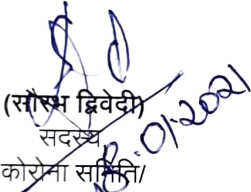 (सौरभ द्विवेदी)
सदस्य
कोरोना समिति/
01-2021